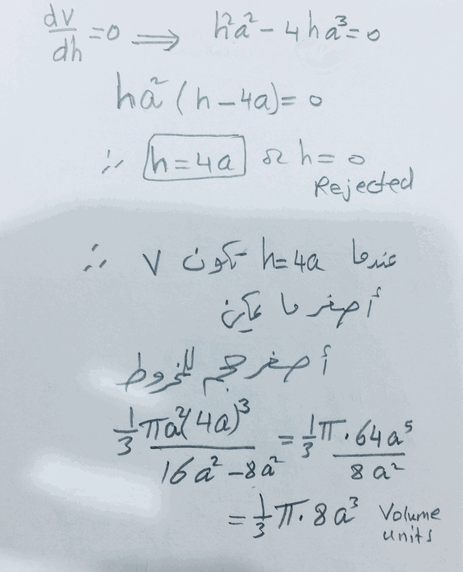 dv/dh = 0 ⟹ h²a² - 4ha³ = 0
ha² (h - 4a) = 0
∴ h = 4a or h = 0
Rejected
∴ عندما h = 4a تكون V
أصغر ما يمكن
أصغر حجم للمخروط
1/3 πa²(4a)³ / 16a² - 8a² = 1/3 π · 64a⁵ / 8a²
= 1/3 π · 8a³ Volume units